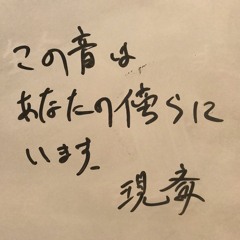 この音は
あなたの傍らに
います。
現